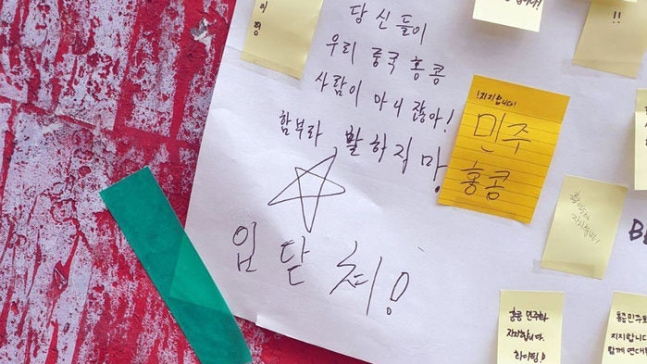 이 정
당신들이
우리 중국 홍콩
사람이 아니 잖아!
함부라 활하지마!
입 닫 쳐!
지지합니다!
민주
홍콩
!!
홍콩 민주화
지지합니다.
화이팅!
홍콩민주화
지지합니다
함께 연대